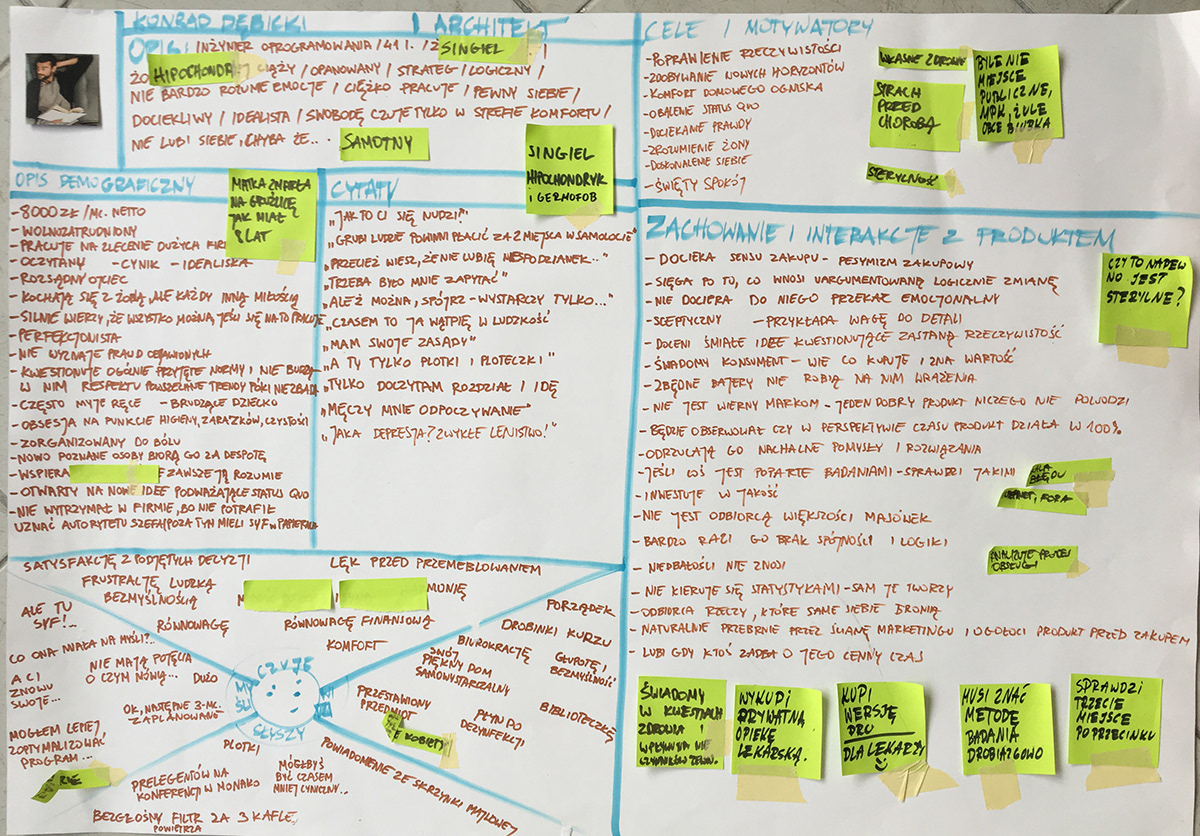 KONRAD DĘBICKI | ARCHITEKT
OPIS: INŻYNIER OPROGRAMOWANIA / 41 l. / Z
SINGIEL
HIPOCHONDRYK
CIĄŻY / OPANOWANY / STRATEG / LOGICZNY /
NIE BARDZO ROZUMIE EMOCJE / CIĘŻKO PRACUJE / PEWNY SIEBIE /
DOCIEKLIWY / IDEALISTA / SWOBODĘ CZUJE TYLKO W STREFIE KOMFORTU /
NIE LUBI SIEBIE, CHYBA ŻE...
SAMOTNY
SINGIEL
HIPOCHONDRYK
I GERMOFOB
OPIS DEMOGRAFICZNY
MATKA ZMARŁA
NA GRUŹLICĘ
JAK MIAŁ
8 LAT
- 8000 ZŁ / MC. NETTO
- WOLNOZATRUDNIONY
- PRACUJE NA ZLECENIE DUŻYCH FIRM
- OCZYTANY - CYNIK - IDEALISKA
- ROZSĄDNY OJCIEC
- KOCHAJĄ SIĘ Z ŻONĄ, ALE KAŻDY INNĄ MIŁOŚCIĄ
- SILNIE WIERZY, ŻE WSZYSTKO MOŻNA, JEŚLI SIĘ NA TO PRACUJE
- PERFEKCJONISTA
- NIE WYZNAJE PRAWD OBJAWIONYCH
- KWESTIONUJE OGÓLNIE PRZYJĘTE NORMY I NIE BUDZĄ
W NIM RESPEKTU POWSZECHNE TRENDY PÓKI NIE ZBADA
- CZĘSTO MYJE RĘCE - BRUDZĄCE DZIECKO
- OBSESJA NA PUNKCIE HIGIENY, ZARAZKÓW, CZYSTOŚCI
- ZORGANIZOWANY DO BÓLU
- NOWO POZNANE OSOBY BIORĄ GO ZA DESPOTĘ
- WSPIERA ZAWSZE JĄ ROZUMIE
- OTWARTY NA NOWE IDEE PODWAŻAJĄCE STATUS QUO
- NIE WYTRZYMAŁ W FIRMIE, BO NIE POTRAFIŁ
UZNAĆ AUTORYTETU SZEFA, POZA TYM MIELI SYF W PAPIERACH
CYTATY
„JAK TO CI SIĘ NUDZI?"
„GRUBI LUDZIE POWINNI PŁACIĆ ZA 2 MIEJSCA W SAMOLOCIE"
„PRZECIEŻ WIESZ, ŻE NIE LUBIĘ NIESPODZIANEK..."
„TRZEBA BYŁO MNIE ZAPYTAĆ"
„ALEŻ MOŻNA, SPÓJRZ - WYSTARCZY TYLKO..."
„CZASEM TO JA WĄTPIĘ W LUDZKOŚĆ
„MAM SWOJE ZASADY"
„A TY TYLKO PLOTKI I PLOTECZKI"
„TYLKO DOCZYTAM ROZDZIAŁ I IDĘ
„MĘCZY MNIE ODPOCZYWANIE"
„JAKA DEPRESJA? ZWYKŁE LENISTWO!"
CELE I MOTYWATORY
- POPRAWIENIE RZECZYWISTOŚCI
- ZDOBYWANIE NOWYCH HORYZONTÓW
- KOMFORT DOMOWEGO OGNISKA
- OBALENIE STATUS QUO
- DOCIEKANIE PRAWDY
- ZROZUMIENIE ŻONY
- DOSKONALENIE SIEBIE
- ŚWIĘTY SPOKÓJ
WŁASNE ZDROWIE
STRACH
PRZED
CHOROBĄ
STERYLNOŚĆ
BYLE NIE
MIEJSCE
PUBLICZNE,
MPK, ŻULE
OBCE BIURKA
ZACHOWANIE I INTERAKCJE Z PRODUKTEM
- DOCIEKA SENSU ZAKUPU - PESYMIZM ZAKUPOWY
- SIĘGA PO TU, CO WNOSI UARGUMENTOWANĄ LOGICZNIE ZMIANĘ
- NIE DOCIERA DO NIEGO PRZEKAZ EMOCJONALNY
- SCEPTYCZNY - PRZYKŁADA WAGĘ DO DETALI
- DOCENI ŚMIAŁE IDEE KWESTIONUJĄCE ZASTANĄ RZECZYWISTOŚĆ
- ŚWIADOMY KONSUMENT - WIE CO KUPUJE I ZNA WARTOŚĆ
- ZBĘDNE BAJERY NIE ROBIĄ NA NIM WRAŻENIA
- NIE JEST WIERNY MARKOM - JEDEN DOBRY PRODUKT NICZEGO NIE DOWODZI
- BĘDZIE OBSERWOWAŁ CZY W PERSPEKTYWIE CZASU PRODUKT DZIAŁA W 100%
- ODRZUCAJĄ GO NACHALNE POMYSŁY I ROZWIĄZANIA
- JEŚLI COŚ JEST POPARTE BADANIAMI - SPRAWDZI JAKIMI
- INWESTUJE W JAKOŚĆ
- NIE JEST ODBIORCĄ WIĘKSZOŚCI MAJÓWEK
- BARDZO RAZI GO BRAK SPÓJNOŚCI I LOGIKI
- NIEDBAŁOŚCI NIE ZNOSI
- NIE KIERUJE SIĘ STATYSTYKAMI - SAM JE TWORZY
- ODBIORCA RZECZY, KTÓRE SAME SIEBIE BRONIĄ
- NATURALNIE PRZEBRNIE PRZEZ ŚCIANĘ MARKETINGU I OGOŁOCI PRODUKT PRZED ZAKUPEM
- LUBI GDY KTOŚ ZADBA O JEGO CENNY CZAS
CZY TO NAPEW
NO JEST
STERYLNE?
BŁĘDU
FORA
OBSŁUGI
ŚWIADOMY
W KWESTIACH
ZDROWIA I
WYKUPI
PRYWATNĄ
OPIEKĘ
LEKARSKĄ.
KUPI
WERSJĘ
PRO
DLA LEKARZY
MUSI ZNAĆ
METODĘ
BADANIA
DROBIAZGOWO
SPRAWDZI
TRZECIE
MIEJSCE
PO PRZECINKU
SATYSFAKCJĘ Z PODJĘTYCH DECYZJI
LĘK PRZED PRZEMEBLOWANIEM
FRUSTRACJĘ LUDZKĄ
BEZMYŚLNOŚCIĄ
MONIĘ
RÓWNOWAGĘ
RÓWNOWAGĘ FINANSOWĄ
KOMFORT
ALE TU
SYF!...
CO ONA MIAŁA NA MYŚLI?..
NIE MAJĄ POJĘCIA
O CZYM MÓWIĄ...
DUŻO
A CI
ZNOWU
SWOJE...
OK, NASTĘPNE 3-MC.
ZAPLANOWANE
MOGŁEM LEPIEJ
ZOPTYMALIZOWAĆ
PROGRAM...
CZUJE
SŁYSZY
PORZĄDEK
DROBINKI KURZU
BIUROKRACJĘ
GŁUPOTĘ I
BEZMYŚLNOŚĆ
SWÓJ
PIĘKNY DOM
SAMOWYSTARCZALNY
BIBLIOTECZKĘ
PRZESTAWIONY
PRZEDMIOT
PŁYN DO
DEZYNFEKCJI
PLOTKI
PRELEGENTÓW NA
KONFERENCJI W MONAKO
MÓGŁBYŚ
BYĆ CZASEM
MNIEJ CYNICZNY...
POWIADOMIENIE ZE SKRZYNKI MAILOWEJ
BEZGŁOŚNY FILTR ZA 3 KAFLE
POWIETRZA